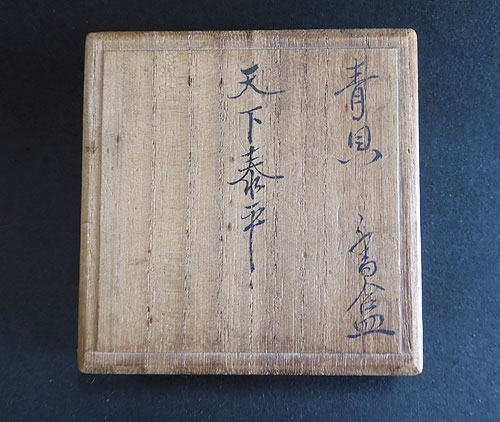 青貝 香盒
天下泰平